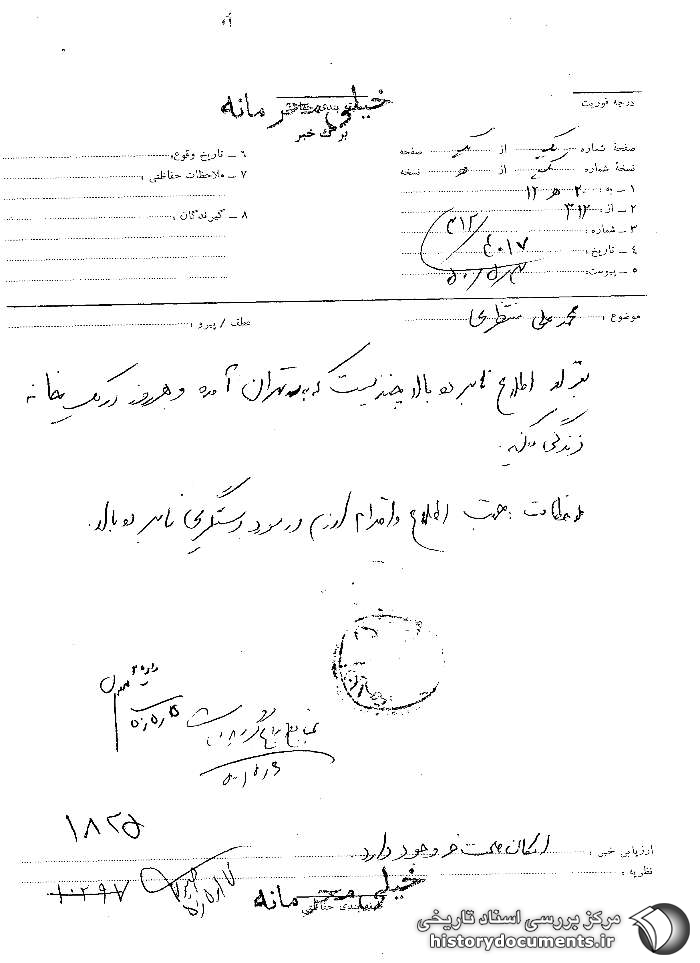 خیلی محرمانه
برگ خبر
درجه فوریت
صفحهٔ شماره یک از یک صفحه
نسخهٔ شماره یک از نسخه
۱ ـ به : ۲۰ ه ۱۲
۲ ـ از : ۳۱۲
۳ ـ شماره : ۴۰۱۷ / ۳۱۲
۴ ـ تاریخ :
۵ ـ پیوست : ۵۰/۵/۳
۶ ـ تاریخ وقوع :
۷ ـ ملاحظات حفاظتی :
۸ ـ گیرندگان :
موضوع : محمد علی منتظری
عطف / پیرو :
اطلاع نامبرده بالا چندیست که به تهران آمده و هر روز در یک خانه
زندگی میکند.
ملاحظات : جهت اطلاع و اقدام لازم در مورد دستگیری نامبرده بالا.
۱۸۲۵
ارزیابی خبر : امکان صحت خبر وجود دارد
نظریه :
۱۰۲۹۷
خیلی محرمانه
طبقه‌بندی حفاظتی
مرکز بررسی اسناد تاریخی
historydocuments.ir